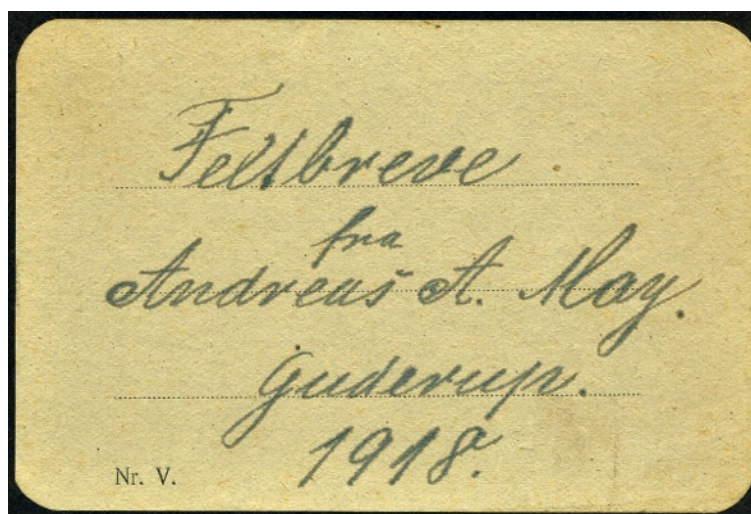 Feltbreve
fra
Andreas A. May.
Guderup.
1918.
Nr. V.